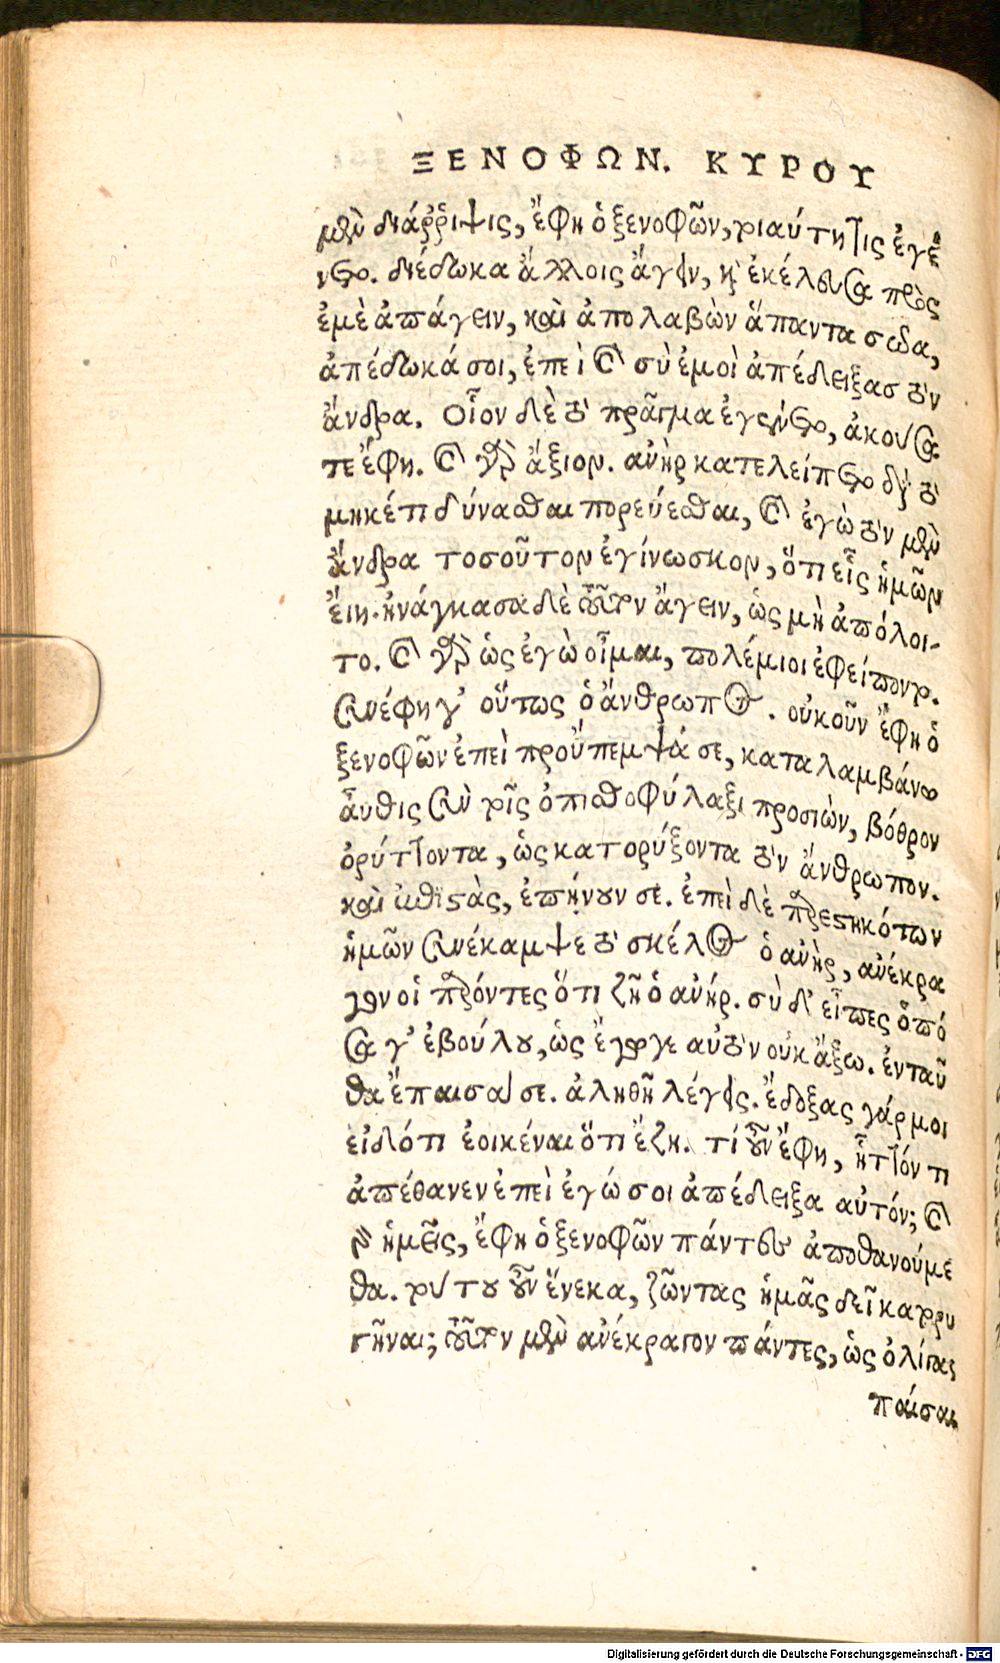 ΞΕΝΟΦΩΝ. ΚΥΡΟΥ
μὲν διάῤῥιψις, ἔφη ὁ ξενοφῶν, τοιαύτη τις ἐγέ
νετο. διέδωκα ἄλλοις ἄγειν, καὶ ἐκέλευσα πρὸς
ἐμὲ ἀπάγειν, καὶ ἀπολαβὼν ἅπαντα σῶα,
ἀπέδωκά σοι, ἐπεὶ καὶ σὺ ἐμοὶ ἀπέδειξας τὸν
ἄνδρα. Οἷον δὲ τὸ πρᾶγμα ἐγένετο, ἀκούσα
τε ἔφη. καὶ γὰρ ἄξιον. ἀνὴρ κατελείπετο διὰ τὸ
μηκέτι δύνασθαι πορεύεσθαι, καὶ ἐγὼ τὸν μὲν
ἄνδρα τοσοῦτον ἐγίνωσκον, ὅτι εἷς ἡμῶν
ἔιη. ἠνάγκασα δὲ τοῦτον ἄγειν, ὡς μὴ ἀπόλοι-
το. καὶ γὰρ ὡς ἐγὼ οἶμαι, πολέμιοι ἐφείποντο.
συνέφη γ' οὕτως ὁ ἄνθρωπος. οὐκοῦν ἔφη ὁ
ξενοφῶν ἐπεὶ προὔπεμψά σε, καταλαμβάνω
ἆυθις σὺν τοῖς ὀπισθοφύλαξι προσιὼν, βόθρον
ὀρύττοντα, ὡς κατορύξοντα τὸν ἄνθρωπον.
καὶ ἐπιστὰς, ἐπῄνουν σε. ἐπεὶ δὲ παρεστηκότων
ἡμῶν συνέκαμψε τὸ σκέλος ὁ ἀνὴρ, ἀνέκρα
γον οἱ παρόντες ὅτι ζῇ ὁ ἀνήρ. σὺ δ' εἶπες ὁπό
σα γ' ἐβούλου, ὡς ἔγωγε αὐτὸν οὐκ ἄξω. ἐνταῦ
θα ἔπαισά σε. ἀληθῆ λέγεις. ἔδοξας γάρ μοι
εἰδότι ἐοικέναι ὅτι ἔζη. τί οὖν ἔφη, ἧττόν τι
ἀπέθανεν ἐπεὶ ἐγώ σοι ἀπέδειξα αὐτόν; καὶ
γὰρ ἡμεῖς, ἔφη ὁ ξενοφῶν πάντες ἀποθανούμε
θα. τούτου οὖν ἕνεκα, ζῶντας ἡμᾶς δεῖ κατορυ
γῆναι; τοῦτον μὲν ἀνέκραγον πάντες, ὡς ὀλίγας
παίσαι
Digitalisierung gefördert durch die Deutsche Forschungsgemeinschaft - DFG